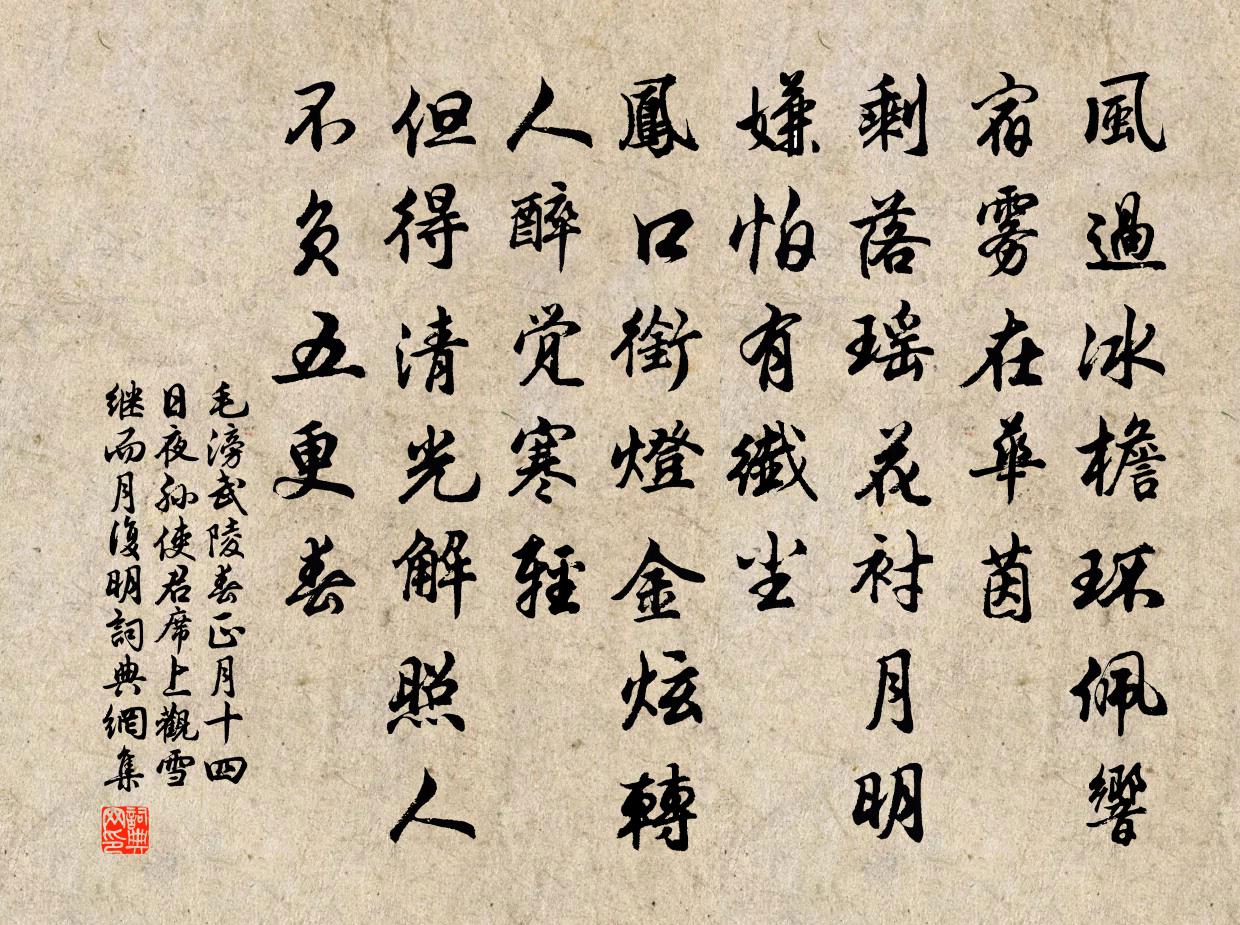 風過冰檐環佩響
宿雾在華茵
剩落瑶花衬月明
嫌怕有纖尘
鳳口銜燈金炫轉
人醉覺寒輕
但得清光解照人
不负五更春
毛滂武陵春正月十四
日夜孙使君席上觀雪
继而月復明詞典網集
詞典
网印